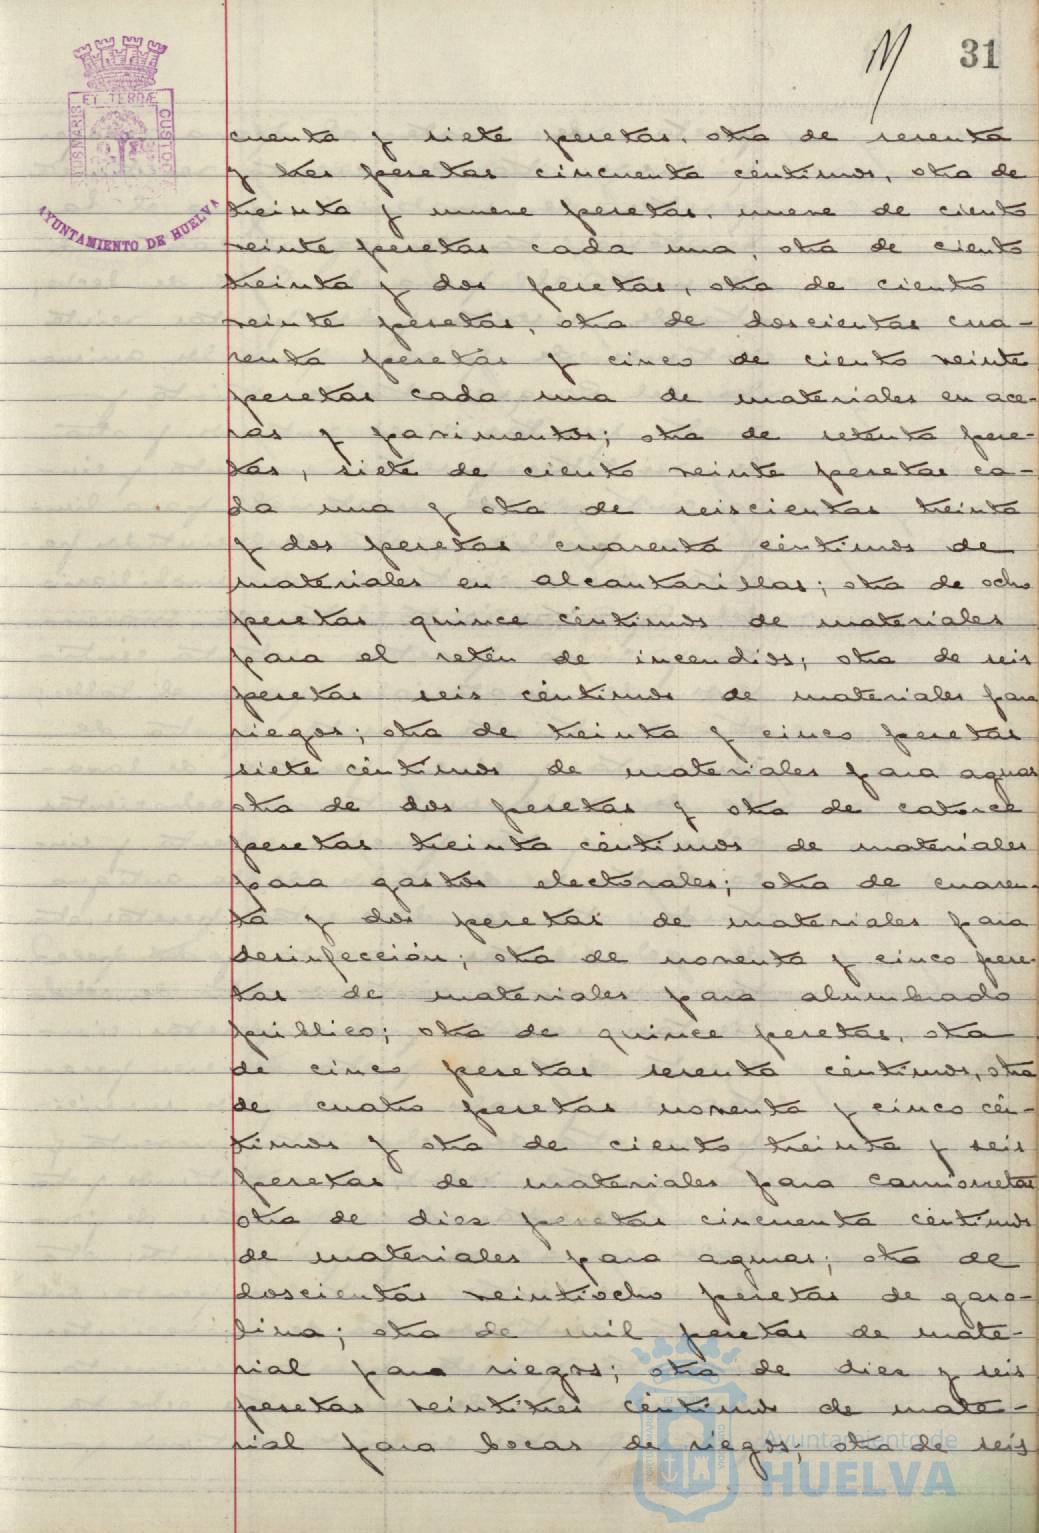 31
ET TERRÆ
CUSTOD
AYUNTAMIENTO DE HUELVA
cuenta y siete pesetas, otra de sesenta
y tres pesetas cincuenta céntimos, otra de
treinta y nueve pesetas, nueve de ciento
veinte pesetas cada una, otra de ciento
treinta y dos pesetas, otra de ciento
veinte pesetas, otra de doscientas cua-
renta pesetas y cinco de ciento veinte
pesetas cada una de materiales en ace-
ras y pavimentos; otra de setenta pese-
tas, siete de ciento veinte pesetas ca-
da una y otra de seiscientas treinta
y dos pesetas cuarenta céntimos de
materiales en alcantarillas; otra de ocho
pesetas quince céntimos de materiales
para el retén de incendios; otra de seis
pesetas seis céntimos de materiales para
riegos; otra de treinta y cinco pesetas
siete céntimos de materiales para aguas
otra de dos pesetas y otra de catorce
pesetas treinta céntimos de materiales
para gastos electorales; otra de cuaren-
ta y dos pesetas de materiales para
desinfección; otra de noventa y cinco pese-
tas de materiales para alumbrado
público; otra de quince pesetas, otra
de cinco pesetas sesenta céntimos, otra
de cuatro pesetas noventa y cinco cén-
timos y otra de ciento treinta y seis
pesetas de materiales para camionetas
otra de diez pesetas cincuenta céntimos
de materiales para aguas; otra de
doscientas veintiocho pesetas de gaso-
lina; otra de mil pesetas de mate-
rial para riegos; otra de diez y seis
pesetas veintitres céntimos de mate-
rial para bocas de riegos; otra de seis
Ayuntamiento de
HUELVA